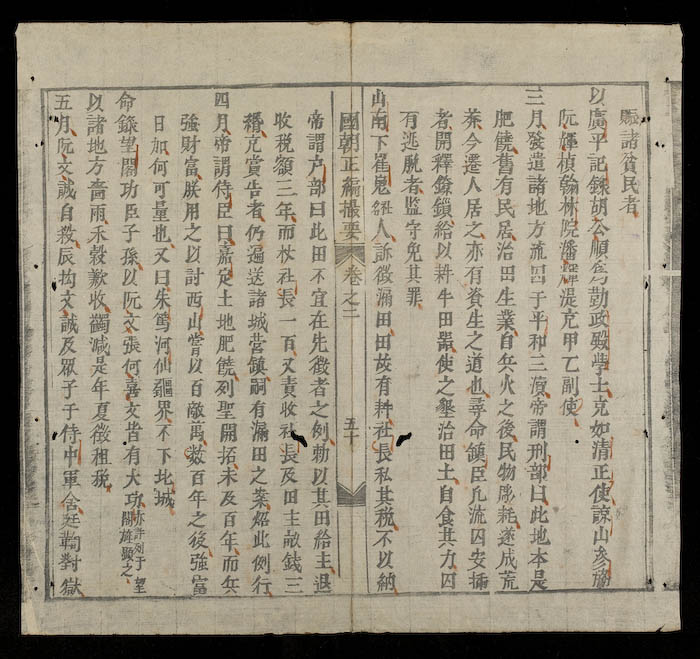 賑諸貧民者
以廣平記錄胡公順爲勤政殿學士克如清正使諒山參協
阮輝楨翰林院潘輝湜充甲乙副使
三月發遣諸地方流囚于平和三瀆帝謂刑部曰此地本是
肥饒舊有民居治田生業自兵火之後民物彫耗遂成荒
萊今遷人居之亦有資生之道也尋命鎮臣凡流囚安插
者開釋鐐鎖給以耕牛田器使之墾治田土自食其力囚
有逃脫者監守免其罪
山南下崔嵬社人訴徵漏田田故有耕社長私其稅不以納
國朝正編撮要 卷之二 五十
帝謂户部曰此田不宜在先徵者之例勅以其田給主退
收稅額三年而杖社長一百又責收社長及田主敵錢三
緡充賞告者仍遍送諸城營鎮嗣有漏田之案炤此例行
四月帝謂侍臣曰嘉定土地肥饒列聖開拓未及百年而兵
強財富朕用之以討西山嘗以百敵萬数百年之後強富
日如何可量也又曰朱篤河仙疆界不下北城
命錄望閣功臣子孫以阮文張何喜文皆有大功亦許列于望閣旌顯之
以諸地方嗇雨禾穀歉收蠲減是年夏徵租稅
五月阮文誠自殺辰拘文誠及眾子于侍中軍舍廷鞫對獄